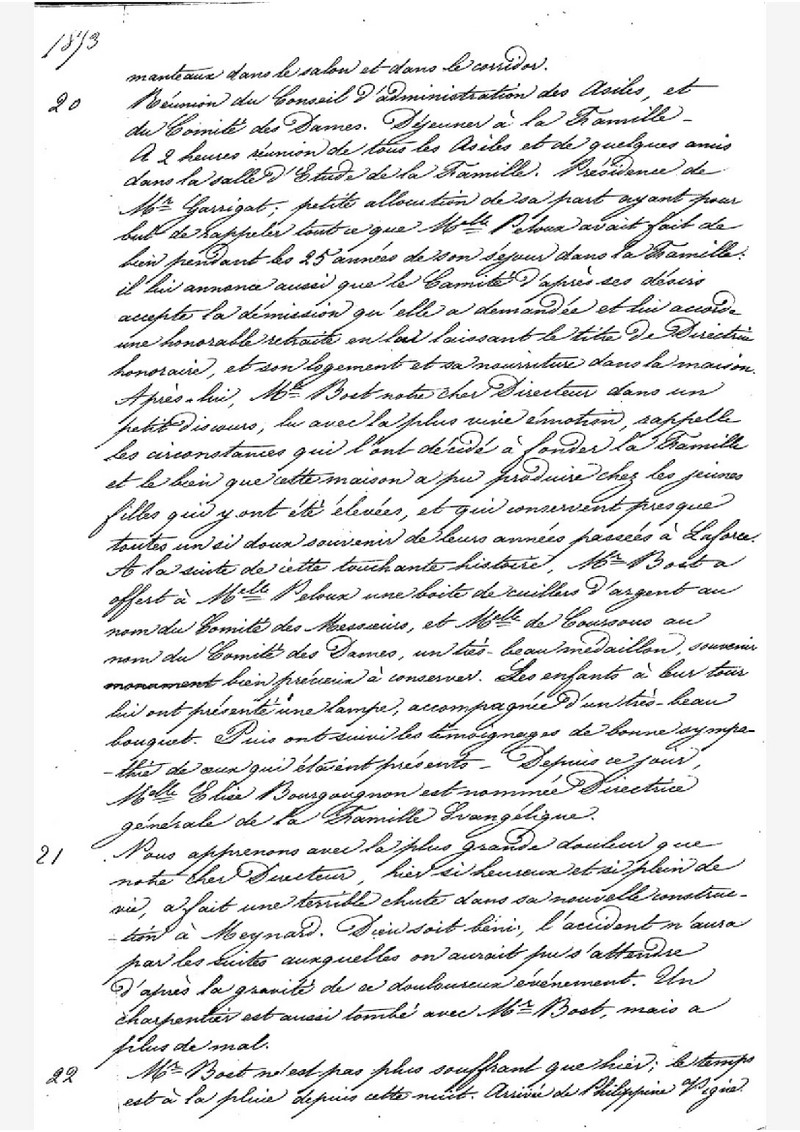 1873
manteaux dans le salon et dans le corridor.
20 Réunion du Conseil d'administration des Asiles, et
du Comité des Dames. Déjeuner à la Famille -
A 2 heures réunion de tous les Asiles et de quelques amis
dans la salle d'Etude de la Famille. Présidence de
Mr Garrigat; petite allocution de sa part ayant pour
but de rappeler tout ce que Melle Peloux avait fait de
bien pendant les 25 années de son séjour dans la Famille;
il lui annonce aussi que le Comité d'après ses désirs
accepte la démission qu'elle a demandée et lui accorde
une honorable retraite en lui laissant le titre de Directrice
honoraire, et son logement et sa nourriture dans la maison.
Après-lui, Mr Bost notre cher Directeur dans un
petit discours, lu avec la plus vive émotion, rappelle
les circonstances qui l'ont décidé à fonder la Famille
et le bien que cette maison a pu produire chez les jeunes
filles qui y ont été élevées, et qui conservent presque
toutes un si doux souvenir de leurs années passées à Laforce.
A la suite de cette touchante histoire, Mr Bost a
offert à Melle Peloux une boite de cuillers d'argent au
nom du Comité des Messieurs, et Melle de Coursous au
nom du Comité des Dames, un très-beau médaillon, souvenir
monument bien précieux à conserver. Les enfants à leur tour
lui ont présenté une lampe, accompagnée d'un très-beau
bouquet. Puis ont suivi les témoignages de bonne sympa-
-thie de ceux qui étaient présents - Depuis ce jour,
Melle Elise Bourgougnon est nommée Directrice
générale de la Famille Evangélique.
21 Nous apprenons avec la plus grande douleur que
notre cher Directeur, hier si heureux et si plein de
vie, a fait une terrible chute dans sa nouvelle construc-
-tion à Meynard. Dieu soit béni, l'accident n'aura
pas les suites auxquelles on aurait pu s'attendre
d'après la gravité de ce douloureux événement. Un
charpentier est aussi tombé avec Mr Bost, mais a
plus de mal.
22 Mr Bost ne est pas plus souffrant que hier; le temps
est à la pluie depuis cette nuit. Arrivée de Philippine Vigié.